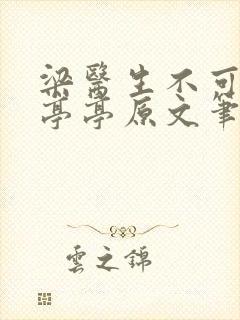 梁醫生不可
亭亭原文筆
雲之錦